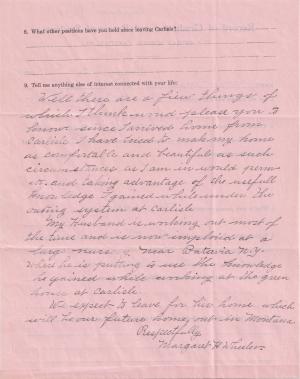 8. What other positions have you held since leaving Carlisle?
9. Tell me anything else of interest connected with your life:
Well there are a few things of
which I think would please you to
know since I arrived home from
Carlisle I have tried to make my home
as comfortable and beautiful as such
circumstances as I am in would perm-
it, and taking advantage of the usefull
knowledge I gained while under the
outing system at Carlisle.
My Husband is working out most of
the time and is now imployed at a
large near Batavia N.Y.
where he is putting to use the knowledge
he gained while working at the green
house at Carlisle.
We expect to leave for his home which
will be our future home, out in Montana
Respectfully
Margaret H Wheeler